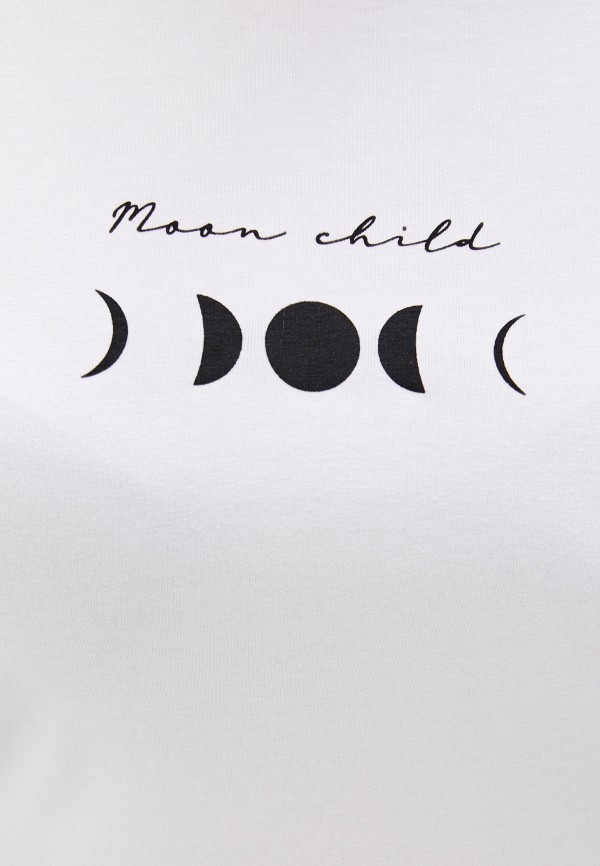 Moon child